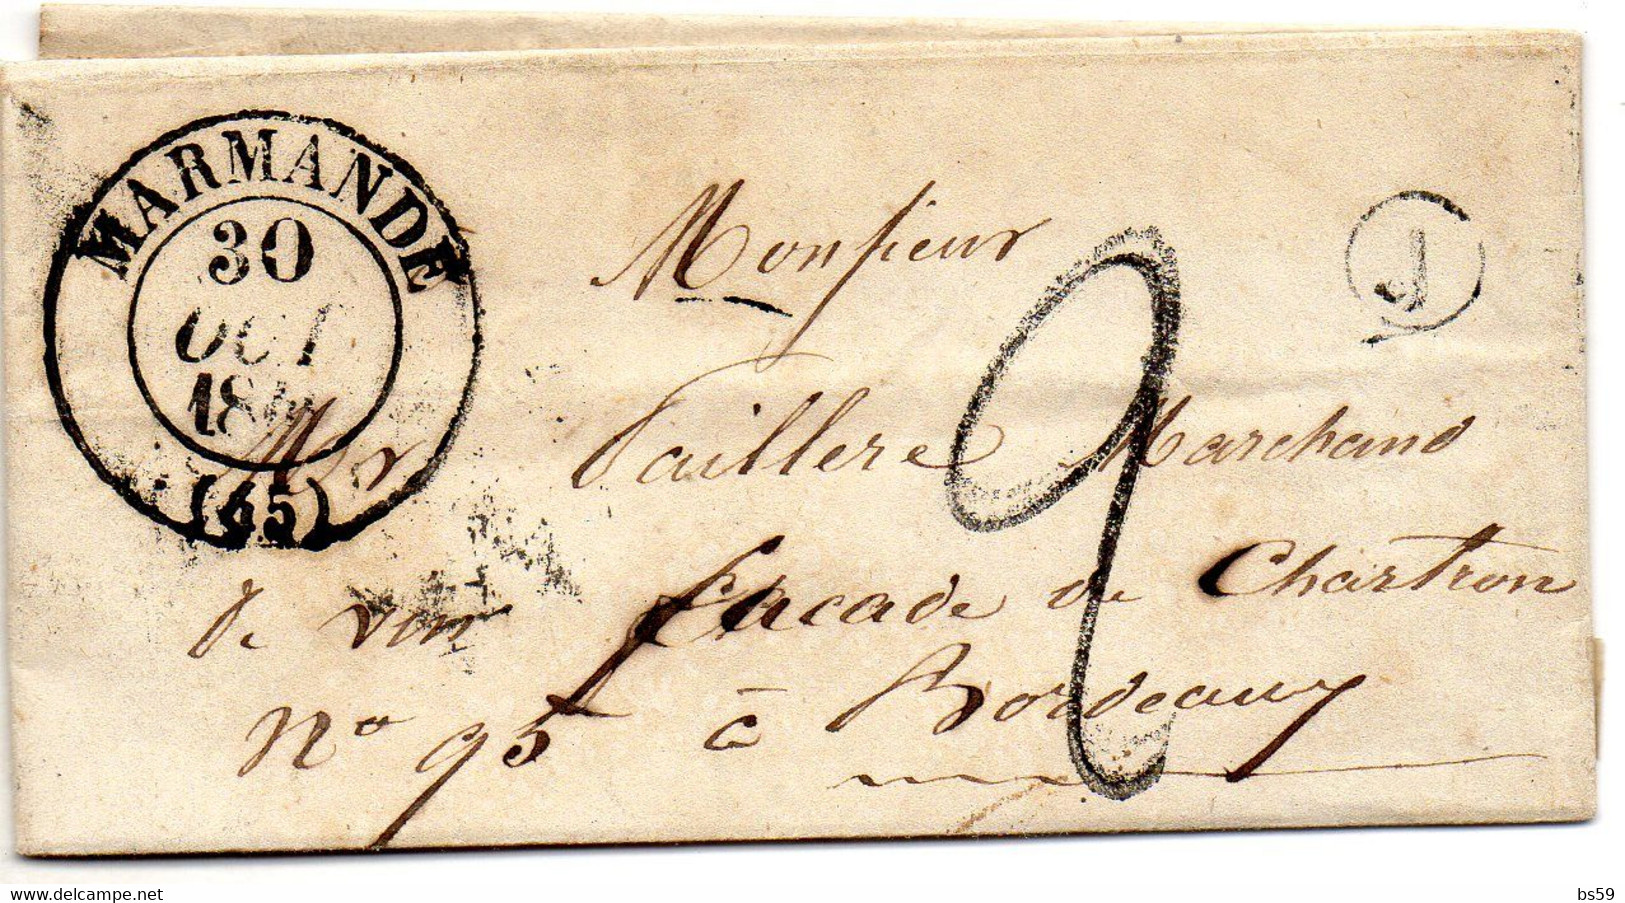 MARMANDE
30
OCT
184
(45)
J
2
Monsieur
Mr Taillere Marchand
de vin facade de Chartron
No 95 à Bordeaux
bs59